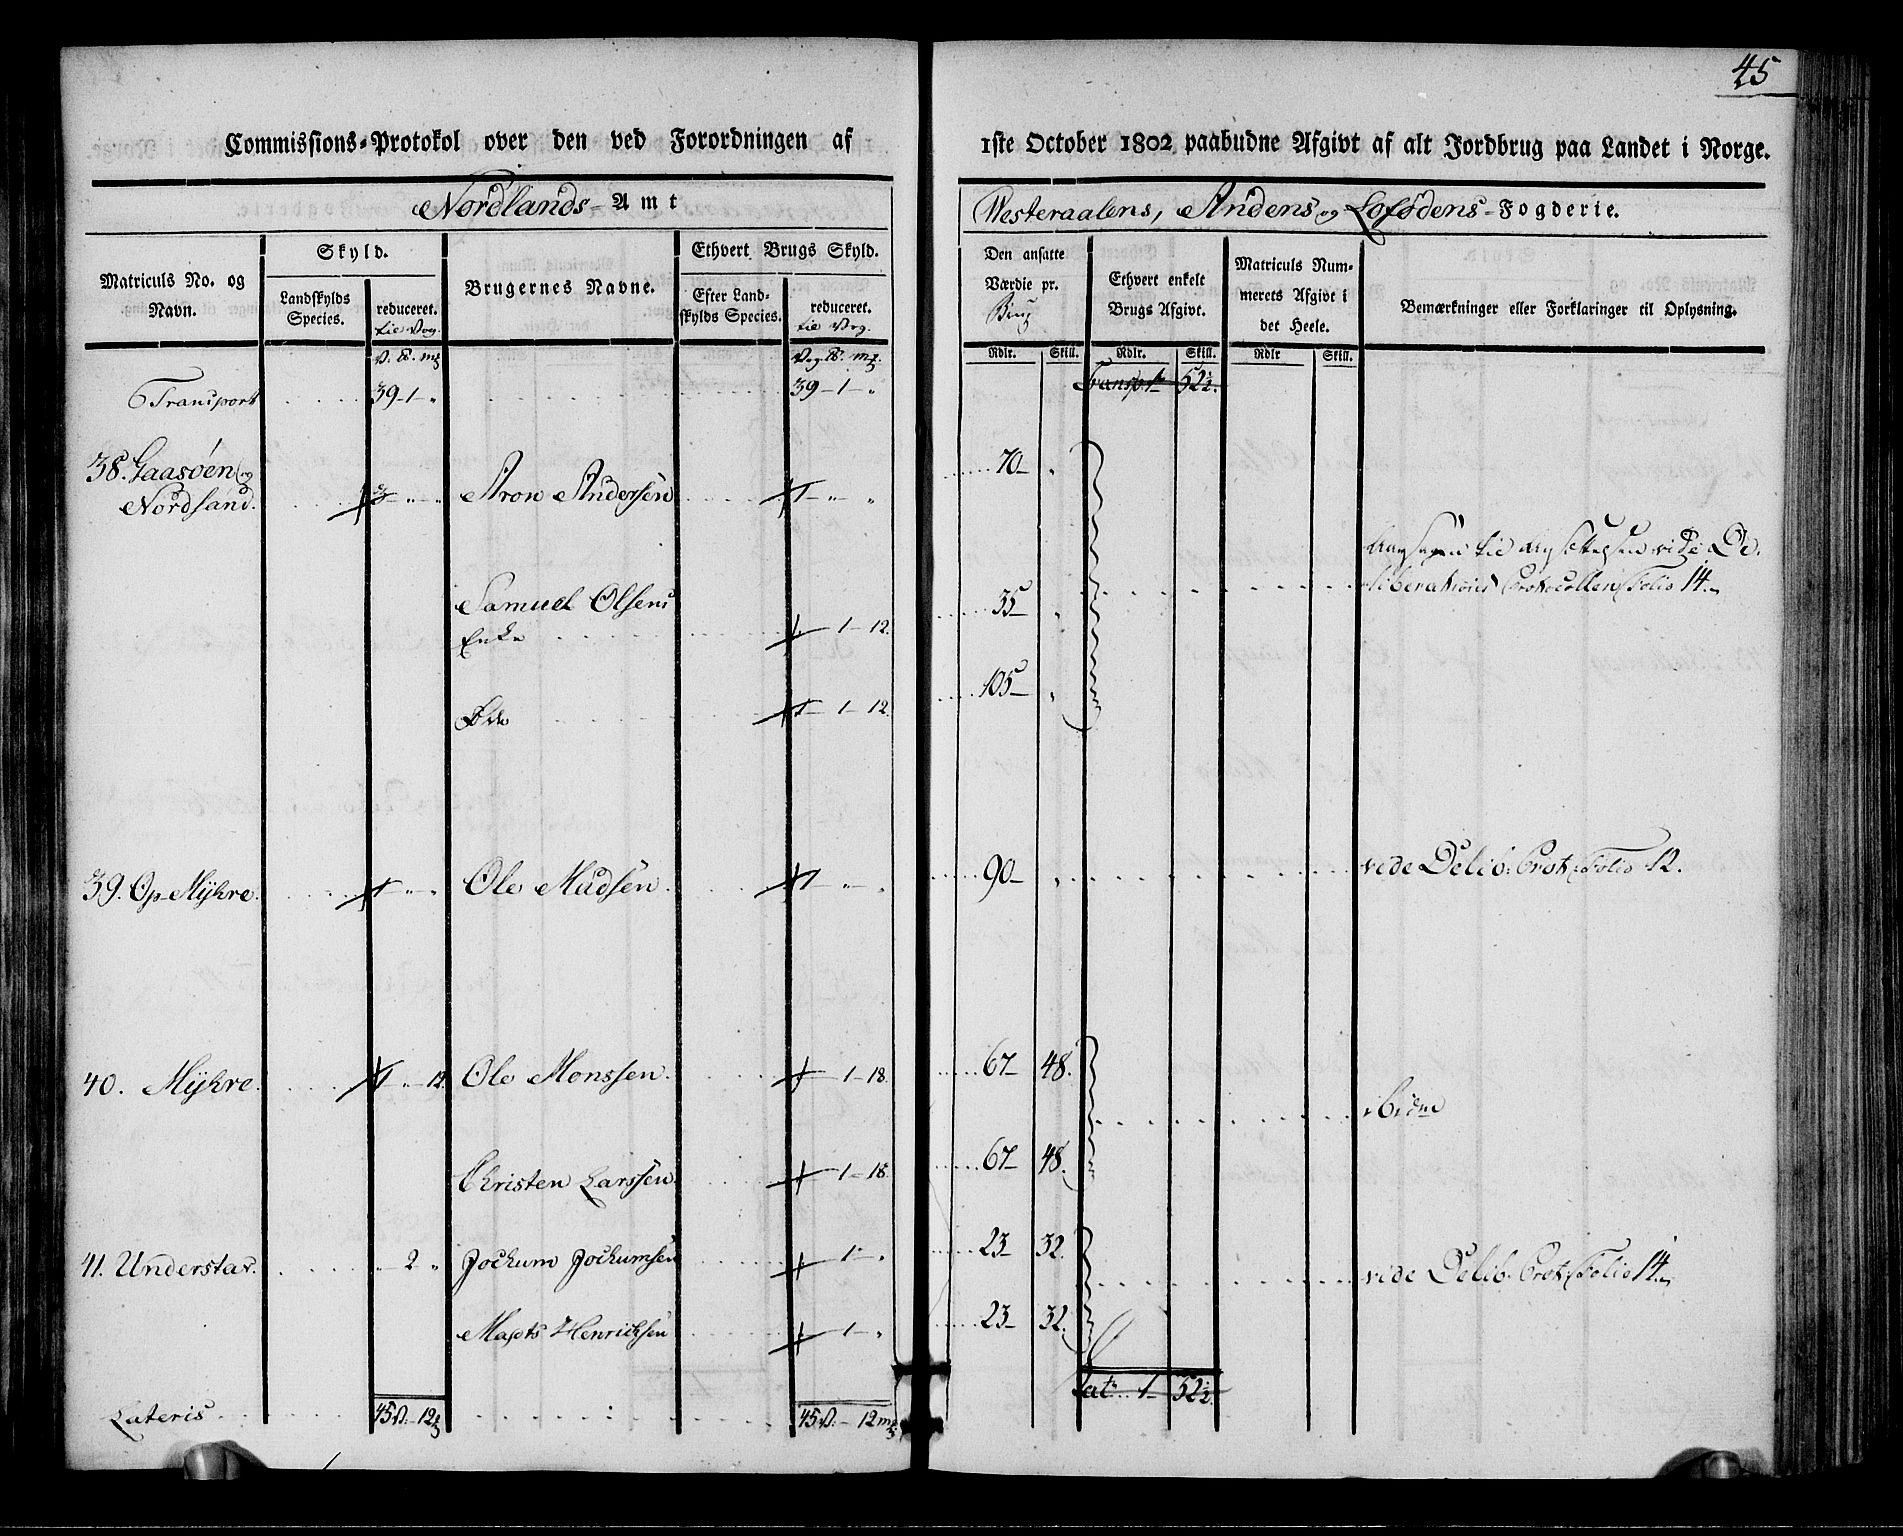 45
Commissions-Protokol over den ved Forordningen af 1ste October 1802 paabudne Afgivt af alt Jordbrug paa Landet i Norge.
Nordlands-Amt
Westeraalens, Andens og Lofodens-Fogderie.
Matriculs No. og Navn.
Skyld.
Landskylds Species.
reduceret. til Vog.
Brugernes Navne.
Ethvert Brugs Skyld.
Efter Landskylds Species.
reduceret. til Vog.
Den ansatte Værdie pr. Brug
Ethvert enkelt Brugs Afgivt.
Matriculs Nummerets Afgivt i det Heele.
Bemærkninger eller Forklaringer til Oplysning.
V. ℔. mƺ Vog ℔. mƺ. Rdlr. Skill. Rdlr. Skill. Rdlr Skill.
Transport 39-1-" 39-1-" Transp. 1 - 52½.
38. Gaasøen og
Nordsand. 3 - " - " Aron Andersen 1 - " - " 70 - "
Samuel Olsens
Enke 1 - 12. 35 - "
vide De-
liberations Protocollen Folio 14.
Øde 1 - 1 - 12. 105 - "
39. Op-Myhre. 1 - " - " Ole Madsen. 1 - " - " 90 - " vide Delib: Prot: Folio 12.
40. Myhre. 1 - " - 12 Ole Monssen. 1 - 18. 67 - 48. ibidem
Christen Larssen. 1 - 18. 67 - 48.
41. Understad. " 2 " Jochum Jochumsen 1 - " 23 - 32. vide Delib. Prot: Folio 14.
Mathis Henrichsen 1 - " 23 - 32.
Lateris 45 V. - 12 mƺ 45 V. - 12 mƺ Lat. 1 - 52½.